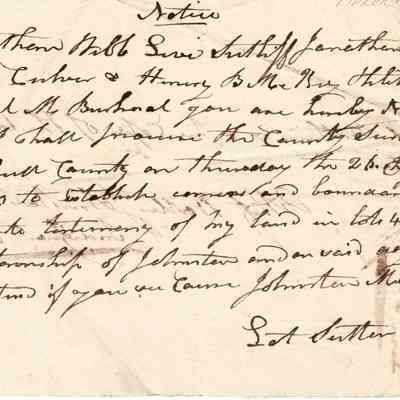 Notice
Webb Levi Sutliff Jonathan
Culver & Henry B McKey
M Bushnal you are hereby
shall procure the County Sur
bull County on thursday the 26
to establish corners and boundar
to testimony of my land in lots 4
township of Johnston and on said
tend if you see cause Johnston